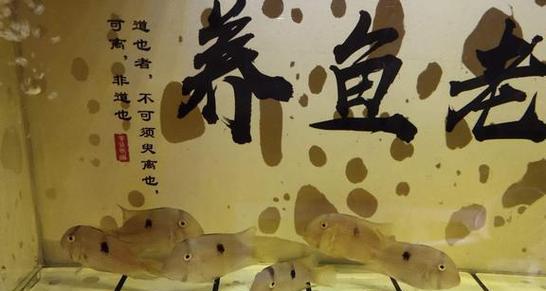 养鱼老
道也者，不可须臾离也，
可离，非道也